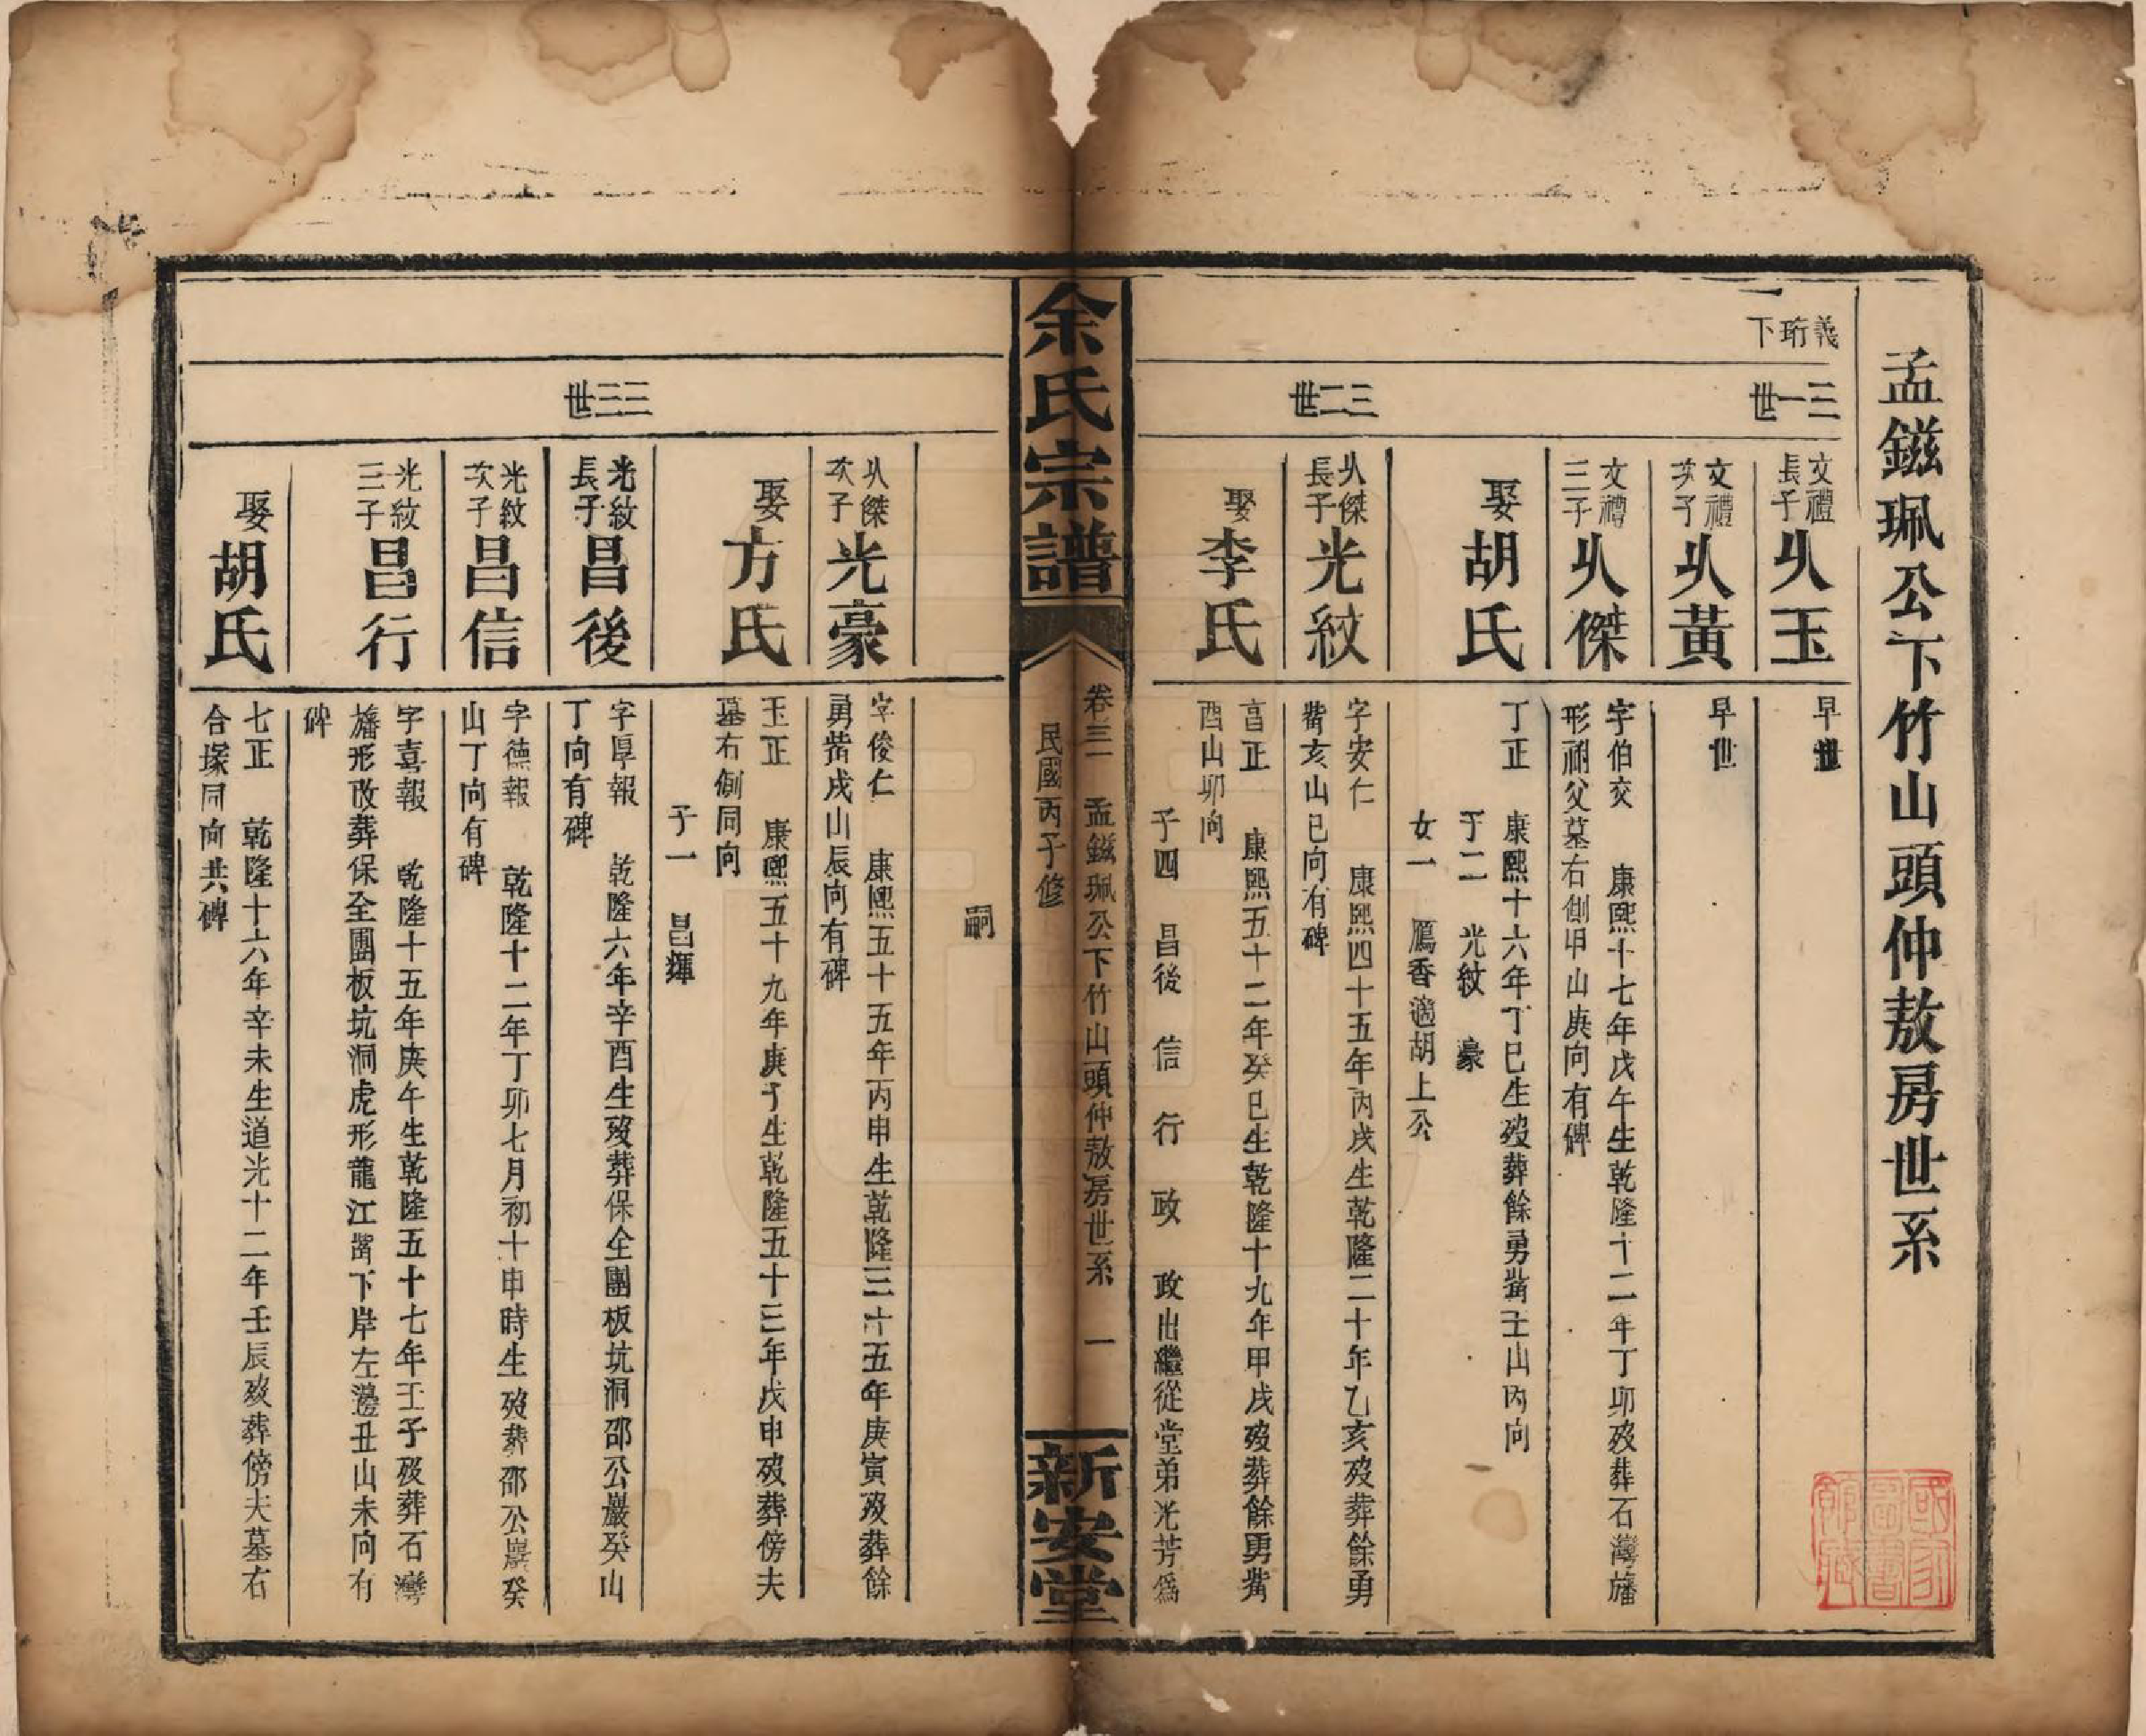 孟鎡珮公下竹山頭仲敖房世系
義珩下
三一世
文禮長子
乆玉
早世
文禮次子
乆黃
早世
文禮三子
乆傑
字伯交 康熙十七年戊午生乾隆十二年丁卯歿葬石灣旛
形祔父墓右側甲山庚向有碑
娶胡氏
丁正 康熙十六年丁巳生歿葬餘勇嘴壬山丙向
子二 光紋 豪
女一 鴈香適胡上公
三二世
乆傑長子
光紋
字安仁 康熙四十五年丙戌生乾隆二十年乙亥歿葬餘勇
嘴亥山巳向有碑
娶李氏
亯正 康熙五十二年癸巳生乾隆十九年甲戌歿葬餘勇嘴
酉山卯向
子四 昌後 信 行 政 政出繼從堂弟光芳爲
余氏宗譜
卷三一 孟鎡珮公下竹山頭仲敖房世系 一
民國丙子修
新安堂
嗣
乆傑次子
光豪
字俊仁 康熙五十五年丙申生乾隆三十五年庚寅歿葬餘
勇嘴戌山辰向有碑
娶方氏
玉正 康熙五十九年庚子生乾隆五十三年戊申歿葬傍夫
墓右側同向
子一 昌運
三三世
光紋長子
昌後
字厚報 乾隆六年辛酉生歿葬保全團板坑洞邵公巖癸山
丁向有碑
光紋次子
昌信
字德報 乾隆十二年丁卯七月初十申時生歿葬邵公巖癸
山丁向有碑
光紋三子
昌行
字喜報 乾隆十五年庚午生乾隆五十七年壬子歿葬石灣
旛形改葬保全團板坑洞虎形龍江嘴下岸左邊丑山未向有
碑
娶胡氏
七正 乾隆十六年辛未生道光十二年壬辰歿葬傍夫墓右
合塚同向共碑
國家圖書館藏